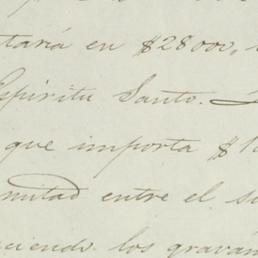 taria en $28000,
Espiritu Santo.
que importa $1
mitad entre el su
ciendo los graván